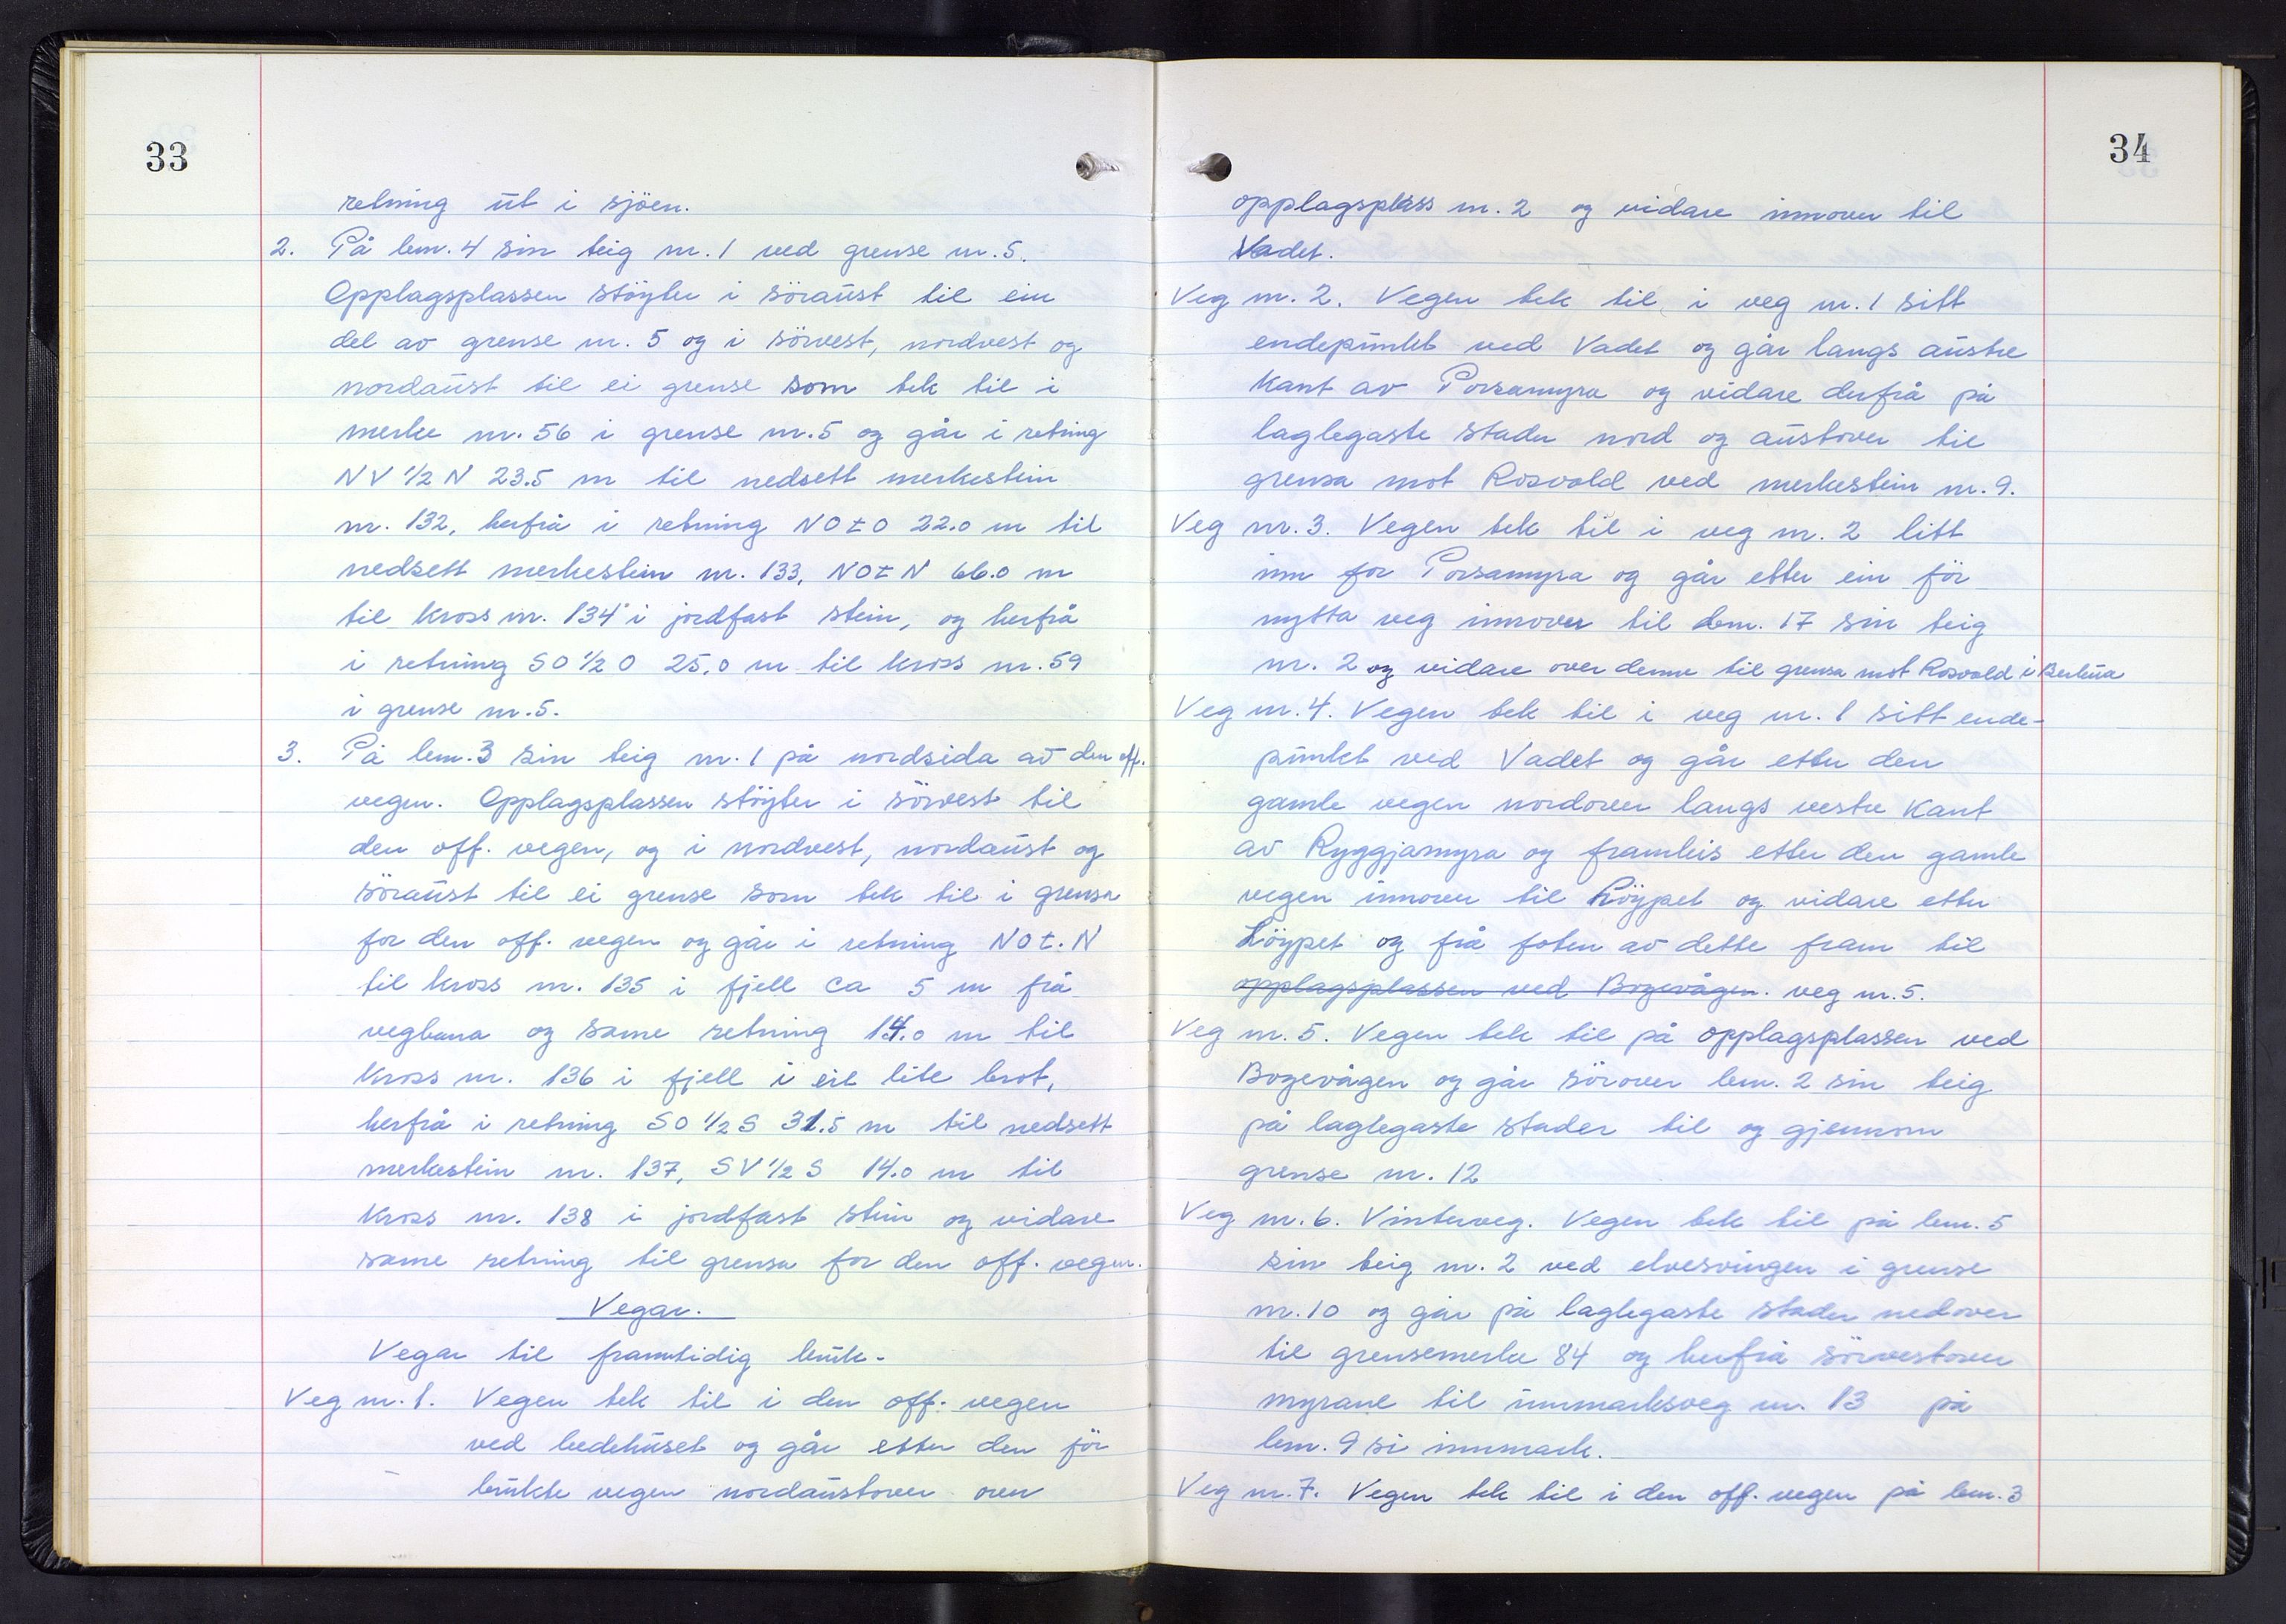 33
retning ut i sjöen.
2. På bnr. 4 sin teig nr. 1 ved grense nr. 5.
Opplagsplassen stöyter i söraust til ein
del av grense nr. 5 og i sörvest, nordvest og
nordaust til ei grense som tek til i
merke nr. 56 i grense nr. 5 og går i retning
NV 1/2 N 23.5 m til nedsett merkestein
nr. 132, herfrå i retning NOtO 22.0 m til
nedsett merkestein nr. 133, NOtN 66.0 m
til kross nr. 134 i jordfast stein, og herfrå
i retning SO 1/2 O 25.0 m til kross nr. 59
i grense nr. 5.
3. På bnr. 3 sin teig nr. 1 på nordsida av den off.
vegen. Opplagsplassen stöyter i sörvest til
den off. vegen, og i nordvest, nordaust og
söraust til ei grense som tek til i grensa
for den off. vegen og går i retning NOt.N
til kross nr. 135 i fjell ca 5 m frå
vegbana og same retning 14.0 m til
kross nr. 136 i fjell i eit lite brot,
herfrå i retning SO 1/2 S 31.5 m til nedsett
merkestein nr. 137, SV 1/2 S 14.0 m til
kross nr. 138 i jordfast stein og vidare
same retning til grensa for den off. vegen.
Vegar.
Vegar til framtidig bruk.
Veg nr. 1. Vegen tek til i den off. vegen
ved bedehuset og går etter den för
brukte vegen nordaustover over
34
opplagsplass nr. 2 og vidare innover til
Vadet.
Veg nr. 2. Vegen tek til i veg nr. 1 sitt
endepunkt ved Vadet og går langs austre
kant av Porsamyra og vidare derfrå på
laglegaste stader nord og austover til
grensa mot Rosvold ved merkestein nr. 9.
Veg nr. 3. Vegen tek til i veg nr. 2 litt
inn for Porsamyra og går etter ein för
nytta veg innover til bnr. 17 sin teig
nr. 2 og vidare over denne til grensa mot Rosvold i
Veg nr. 4. Vegen tek til i veg nr. 1 sitt ende-
punkt ved Vadet og går etter den
gamle vegen nordover langs vestre kant
av Ryggjamyra og framleis etter den gamle
vegen innover til Löypet og vidare etter
Löypet og frå foten av dette fram til
opplagsplassen ved Bogevågen. veg nr. 5.
Veg nr. 5. Vegen tek til på opplagsplassen ved
Bogevågen og går sörover bnr. 2 sin teig
på laglegaste stader til og gjennom
grense nr. 12
Veg nr. 6. Vinterveg. Vegen tek til på bnr. 5
sin teig nr. 2 ved elvesvingen i grense
nr. 10 og går på laglegaste stader nedover
til grensemerke 84 og herfrå sörvestover
myrane til innmarksveg nr. 13 på
bnr. 9 si innmark.
Veg nr. 7. Vegen tek til i den off. vegen på bnr. 3